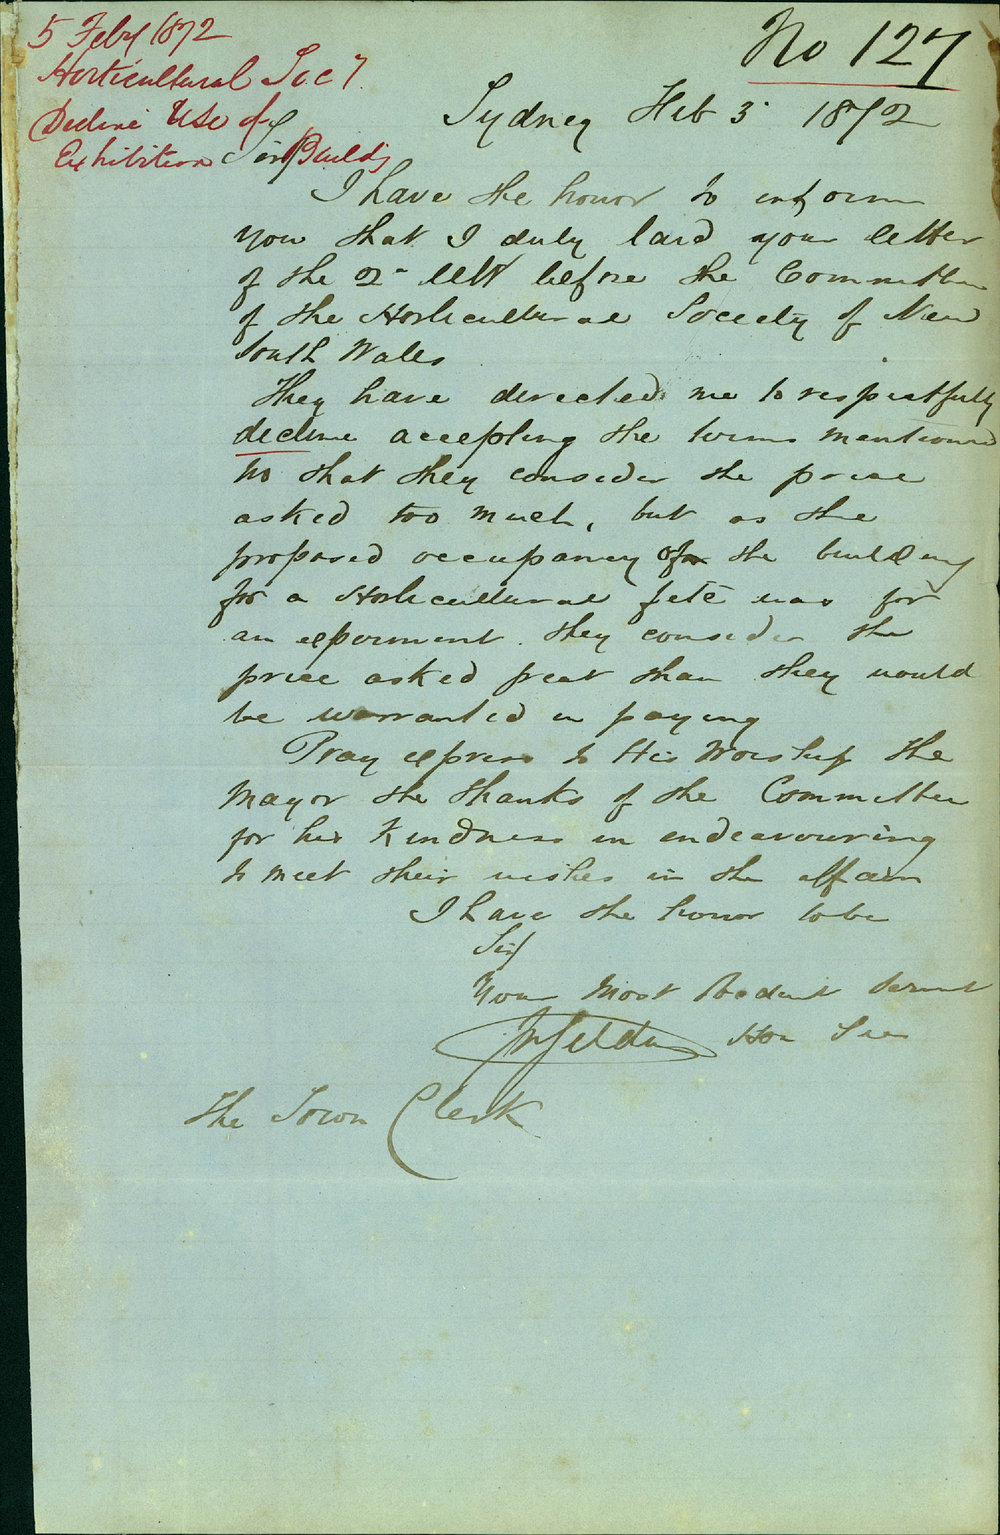 5 Feby 1872
Horticultural Socy
Decline Use of
Exhibition Buildg
No 127
Sydney Feb 3 1872
Sir
I have the honor to inform
you that I duly laid your letter
of the 2nd before the Committee
of the Horticultural Society of New
South Wales
They have directed me to respectfully
decline accepting the terms mentioned
that they consider the price
asked too much, but as the
proposed occupancy of the building
for a Horticultural fete was for
an experiment they consider the
price asked great than they would
be warranted in paying
Pray express to His Worship the
Mayor the thanks of the Committee
for his kindness in endeavouring
to meet their wishes in the affair
I have the honor to be
Sir
Your Most Obedient Servant
Hon Sec
The Town Clerk